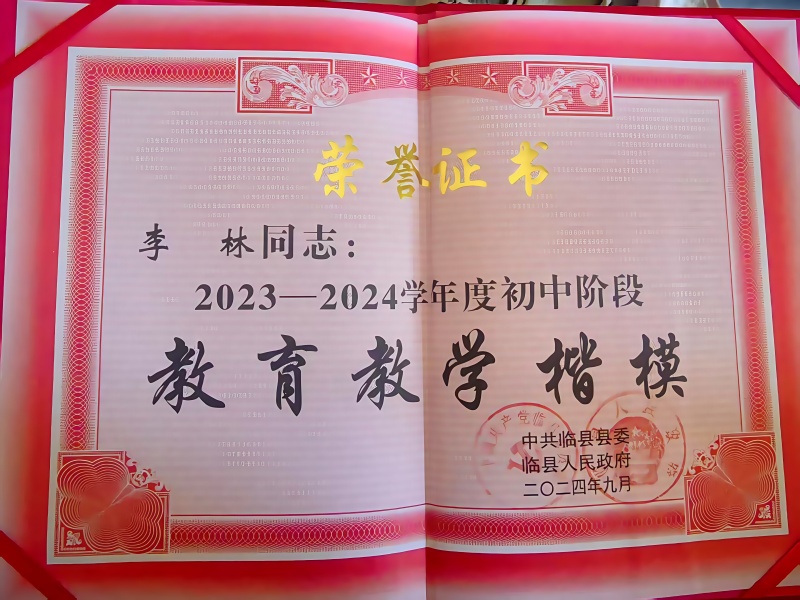 荣誉证书
李 林同志：
2023—2024学年度初中阶段
教育教学楷模
中共临县县委
临县人民政府
二〇二四年九月